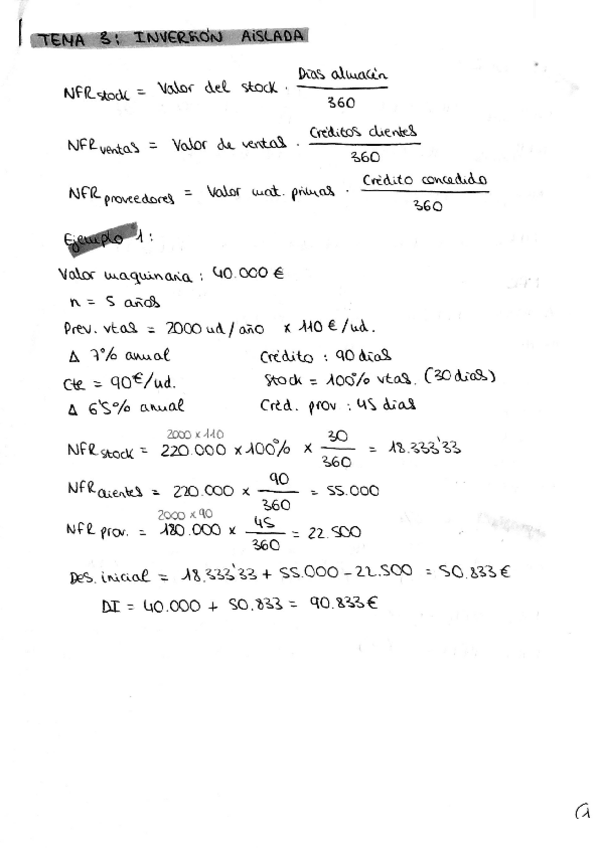 TEMA 3: INVERSIÓN AISLADA
NFR stock = Valor del stock · Días almacén / 360
NFR ventas = Valor de ventas · Créditos clientes / 360
NFR proveedores = Valor mat. primas · Crédito concedido / 360
Ejemplo 1:
Valor maquinaria: 40.000 €
n = 5 años
Prev. vtas = 2000 ud/año x 110 €/ud.
Δ 7% anual Crédito: 90 días
Cte = 90€/ud. Stock = 100% vtas. (30 días)
Δ 6'5% anual Créd. prov: 45 días
2000 x 110
NFR stock = 220.000 x 100% x 30 / 360 = 18.333'33
NFR clientes = 220.000 x 90 / 360 = 55.000
2000 x 90
NFR prov. = 180.000 x 45 / 360 = 22.500
Des. inicial = 18.333'33 + 55.000 - 22.500 = 50.833 €
DI = 40.000 + 50.833 = 90.833 €